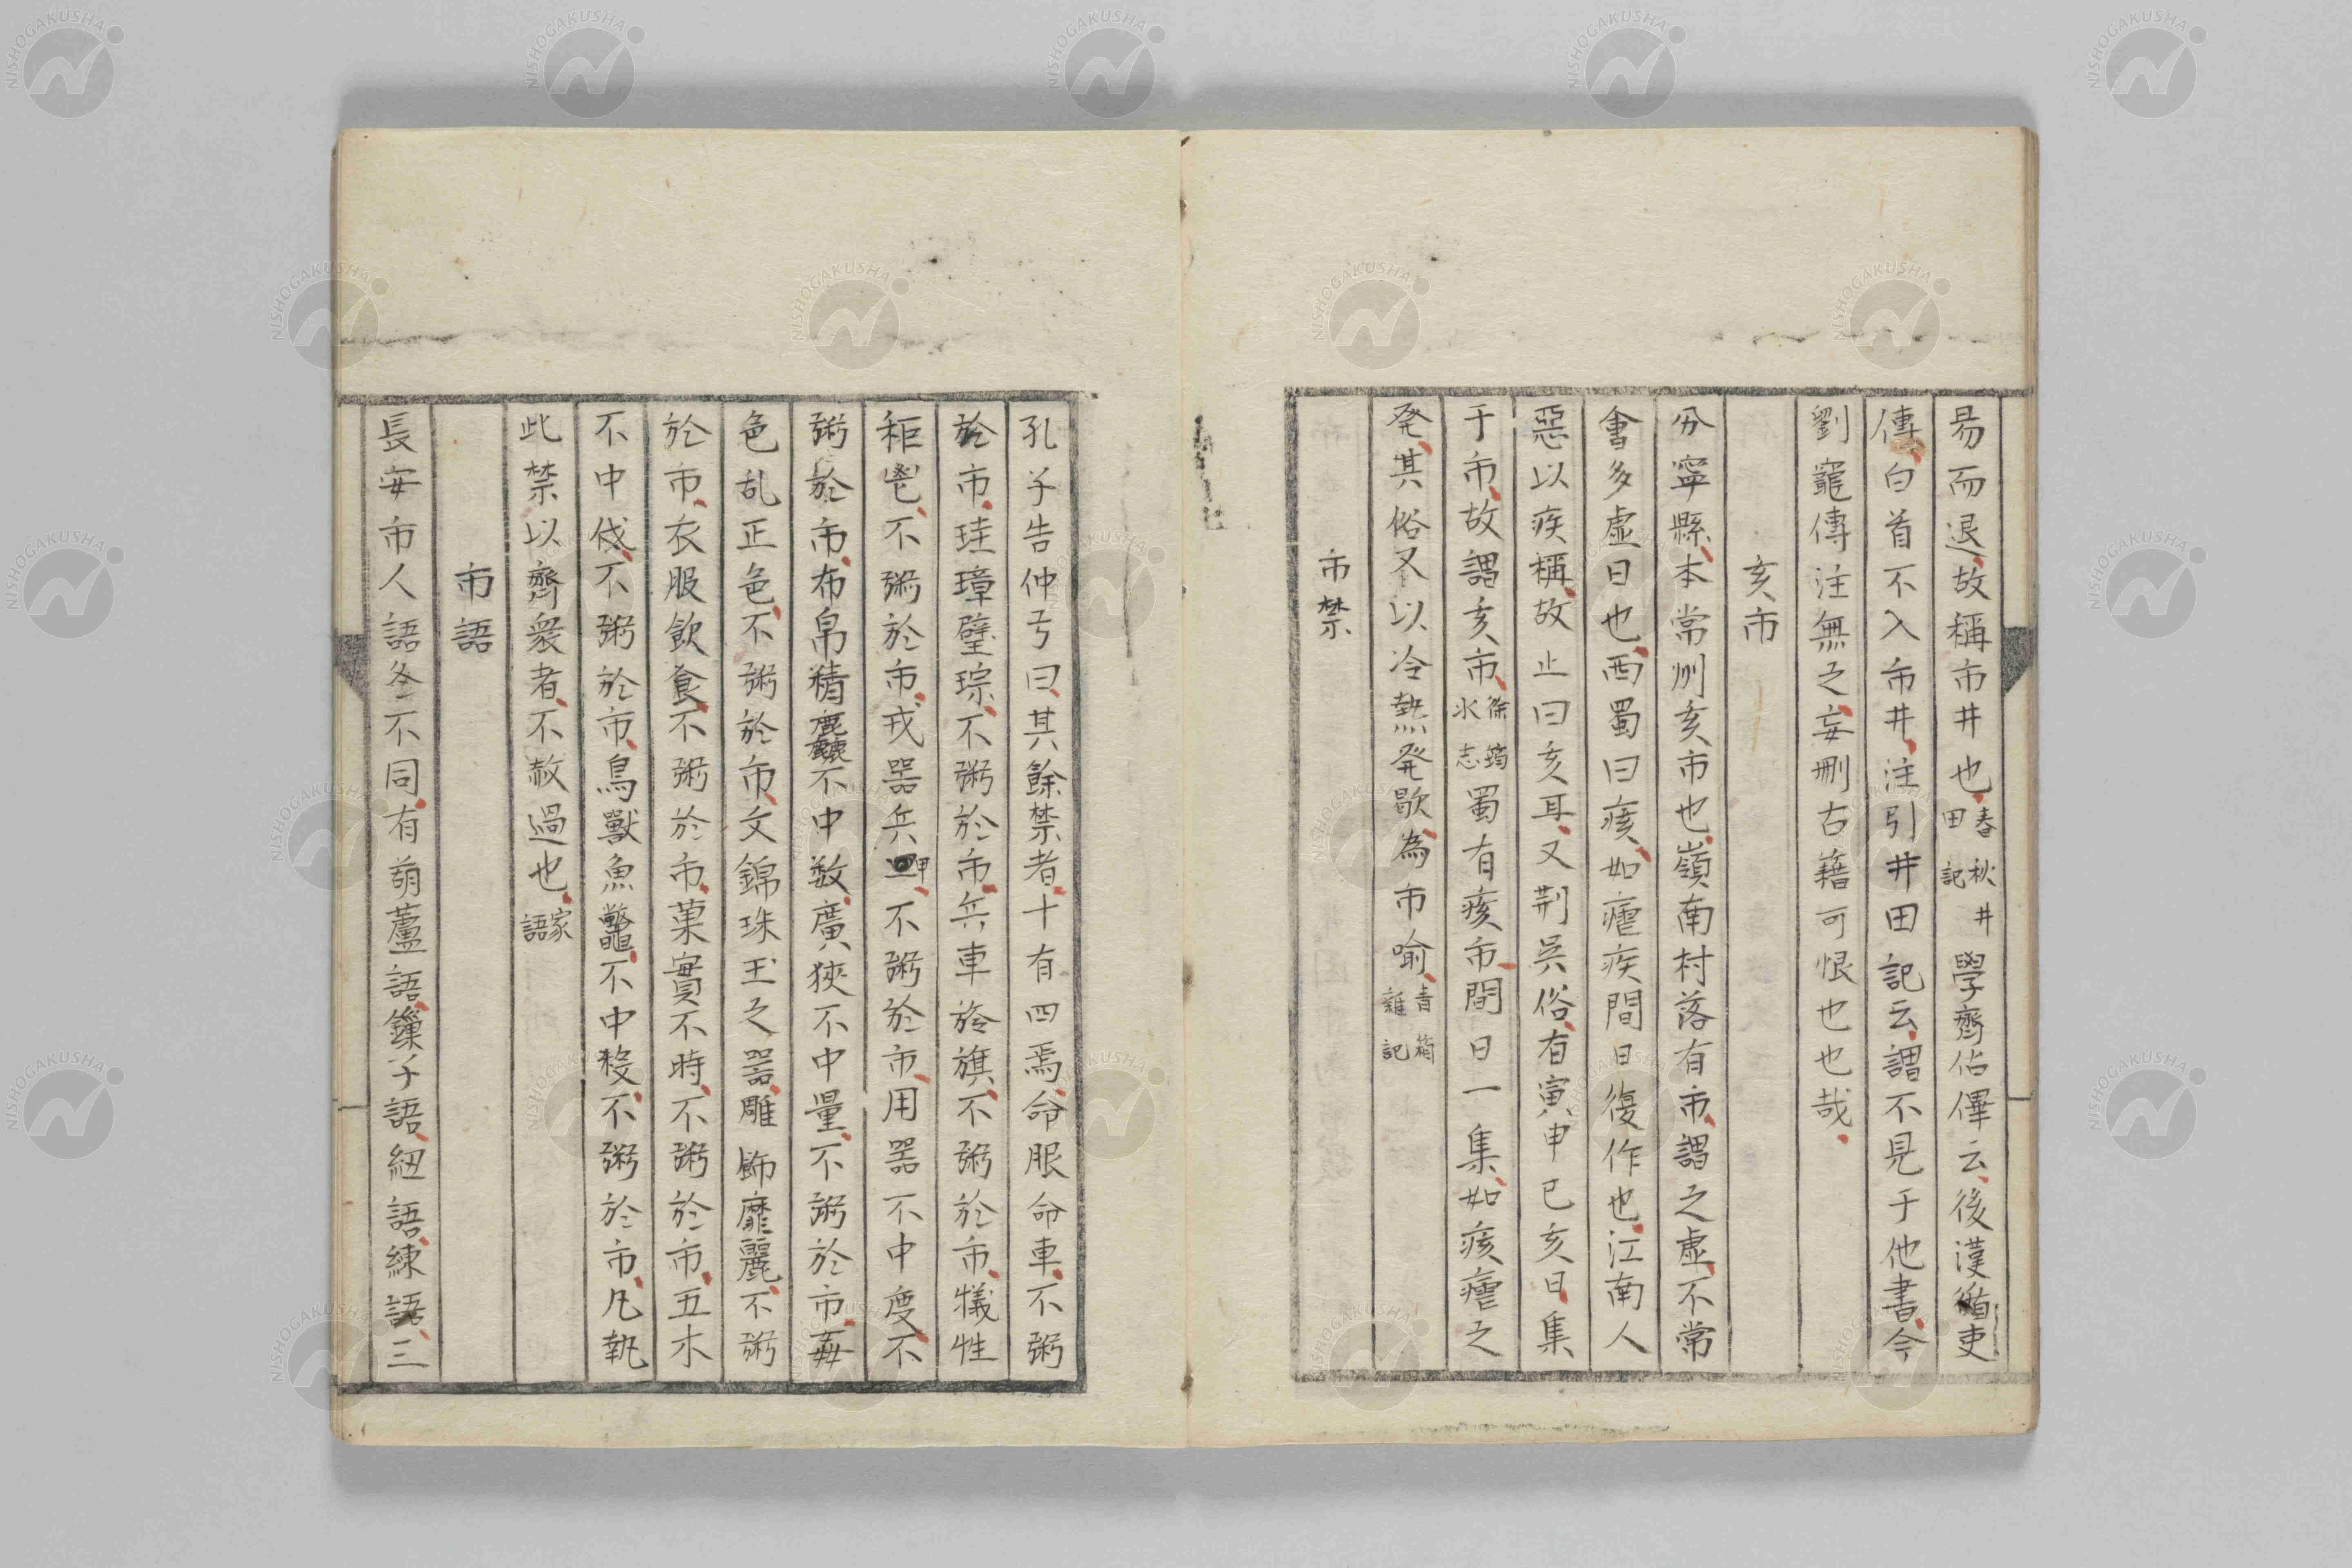 易而退故稱市井也春秋井田記學齋佔僤云後漢循吏
傳白首不入市井注引井田記云謂不見于他書今
劉寵傳注無之妄刪古藉可恨也也哉
亥市
分寧縣本常州亥市也嶺南村落有市謂之虛不常
會多虛日也西蜀曰痎如瘧疾間日復作也江南人
惡以疾稱故止曰亥耳又荆吳俗有寅申巳亥日集
于市故謂亥市徐筠水志蜀有痎市間日一集如痎瘧之
発其俗又以冷熱発歇為市喻青箱雜記
市禁
孔子告仲弓曰其餘禁者十有四焉命服命車不粥
於市珪璋璧琮不粥於市兵車旍旗不粥於市犧牲
秬鬯不粥於市戎器兵甲不粥於市用器不中度不
粥於市布帛精麤不中數廣狹不中量不粥於市姦
色乱正色不粥於市文錦珠玉之器雕飾靡麗不粥
於市衣服飲食不粥於市菓實不時不粥於市五木
不中伐不粥於市鳥獸魚鼈不中殺不粥於市凡執
此禁以齊衆者不赦過也家語
市語
長安市人語各不同有葫蘆語鏁子語紐語練語三
NISHOGAKUSHA